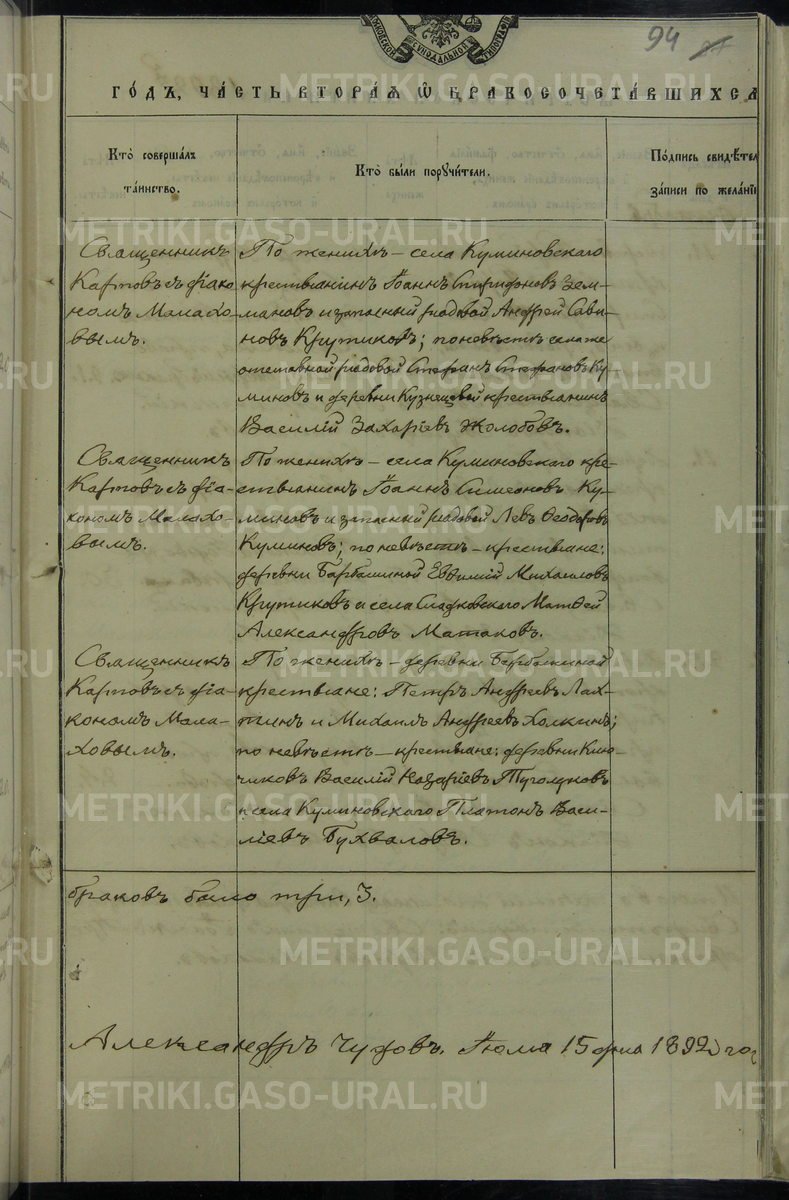 МОСКОВСКОЙ СѴНОДАЛЬНОЙ ТИПОГРАФІИ
94
ГО́ДЪ, ЧА́СТЬ ВТОРА́Ѧ Ѡ҆ БРАКОСОЧЕТА́ВШИХСѦ
Кто̀ соверша́лъ
та́инство.
Кто̀ бы́ли поручи́тели.
По́дпись свидѣ́тел
за́писи по жела́нїю
Священникъ
Картовъ съ діако
номъ Малахо-
вымъ.
По женихѣ – села Куминовскаго
крестьянинъ Іоаннъ Спиридоновъ Зем-
мановъ и запасный рядовой Андрей Сави-
новъ Крутиковъ; по невѣстѣ села же
отставной рядовой Стефанъ Стефановъ Ку-
миновъ и деревни Кузнецовой крестьянинъ
Василій Захаріевъ Жолобовъ.
Священникъ
Картовъ съ діа-
кономъ Малахо-
вымъ.
По женихѣ – села Куминовскаго кре-
стьянинъ Іоаннъ Симеоновъ Ку-
миновъ и запасный рядовой Левъ Ѳеодоровъ
Куминовъ; по невѣстѣ – крестьяне:
деревни Барбашиной Евѳимій Михаиловъ
Крутиковъ и села Сладковскаго Матѳей
Александровъ Матаковъ.
Священникъ
Картовъ съ діа-
кономъ Мала-
ховымъ.
По женихѣ – деревни Барбашиной
крестьяне: Петръ Андреевъ Лах-
тинъ и Михаилъ Андреевъ Холкинъ;
по невѣстѣ – крестьяне: деревни Клю-
чиковъ Василій Назаріевъ Туголуковъ
и села Куминовскаго Платонъ Васи-
ліевъ Бухваловъ.
браковъ было три, 3.
Александръ Чудовъ. Іюля 15 дня 1892 го
METRIKI.GASO-URAL.RU